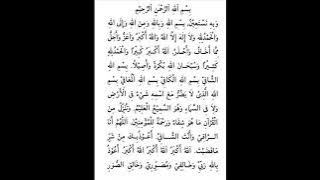 بِسْمِ اللهِ الرَّحْمٰنِ الرَّحِيْمِ
وَبِهِ نَسْتَعِيْنُ. بِسْمِ اللهِ وَبِاللهِ وَمِنَ اللهِ وَإِلَى اللهِ
وَالْحَمْدُلِلّٰهِ وَلَا إِلٰهَ إِلَّا اللهُ وَاللهُ أَكْبَرُ وَأَعَزُّ وَأَجَلُّ
مِمَّا أَخَافُ وَأَحْذَرُ. اللهُ أَكْبَرُ كَبِيْرًا وَالْحَمْدُلِلّٰهِ
كَثِيْرًا وَسُبْحَانَ اللهِ بُكْرَةً وَأَصِيْلًا. بِسْمِ اللهِ
الشَّافِيْ بِسْمِ اللهِ الْكَافِيْ بِسْمِ اللهِ الْمُعَافِيْ بِسْمِ
اللهِ الَّذِيْ لَا يَضُرُّ مَعَ اسْمِهِ شَيْءٌ فِي الْأَرْضِ
وَلَا فِي السَّمَاءِ وَهُوَ السَّمِيْعُ الْعَلِيْمُ. وَنُنَزِّلُ مِنَ
الْقُرْآنِ مَا هُوَ شِفَاءٌ وَرَحْمَةٌ لِلْمُؤْمِنِيْنَ. اَللّٰهُمَّ أَنَا
الرَّاقِيْ وَأَنْتَ الشَّافِيْ. أَعُوْذُ بِكَ مِنْ شَرِّ
مَاقَضَيْتَ. اللهُ أَكْبَرُ اللهُ أَكْبَرُ اللهُ أَكْبَرُ. أَعُوْذُ
بِاللهِ رَبِّيْ وَخَالِقِيْ وَمُصَوِّرِيْ وَخَالِقِ الصُّوَرِ